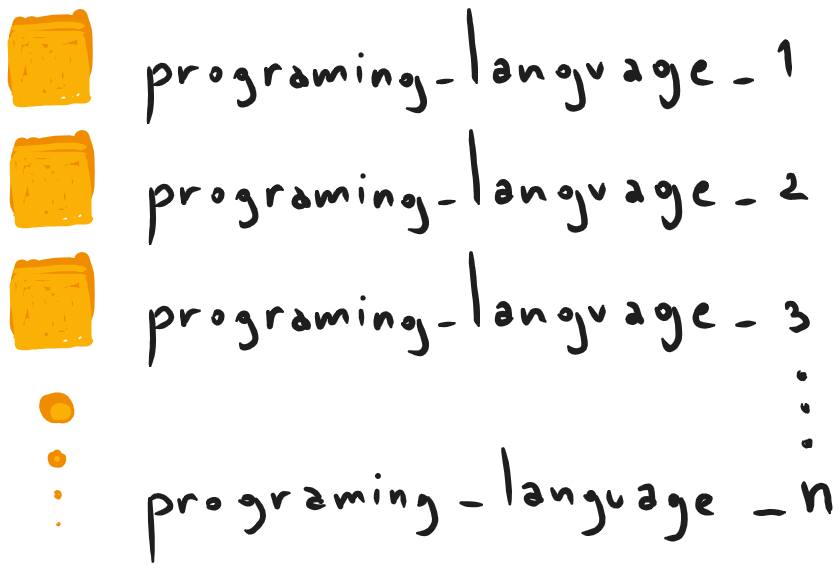 programing_language_1
programing_language_2
programing_language_3
programing_language_n